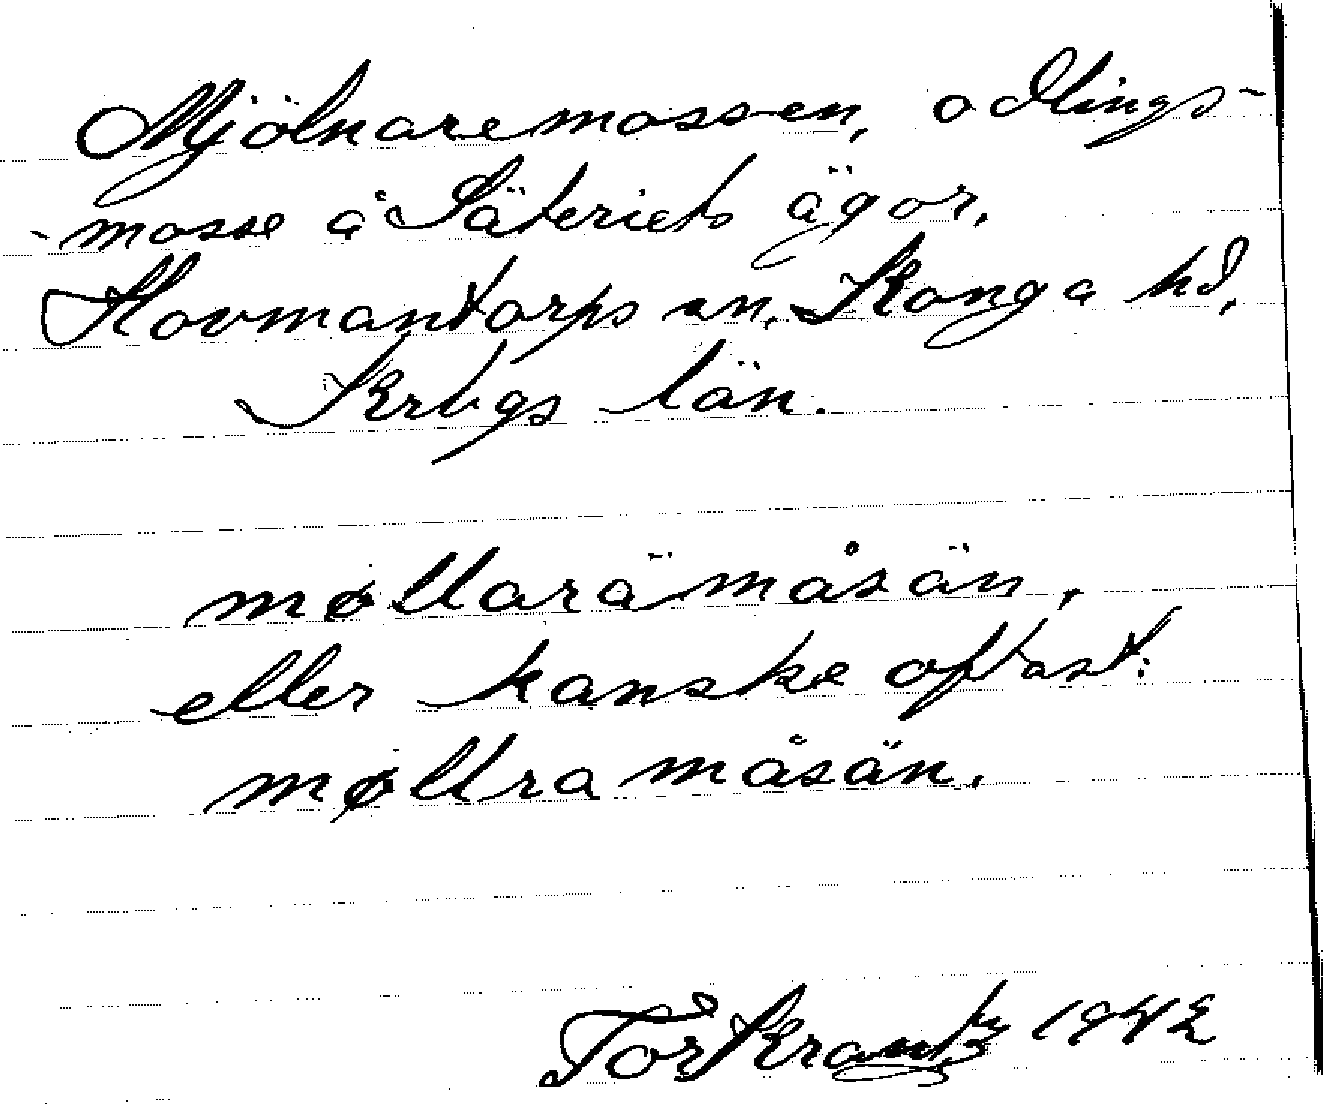 Mjölnaremossen, odlings-
-mosse å Säteriets ägor,
Hovmantorps sn, Konga hd,
Krbgs län.
møllarämåsän,
eller kanske oftast:
møllramåsän.
Tor Krantz 1942